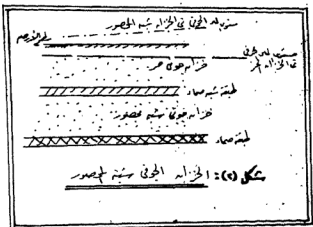 مستوى الماء الجوفي في الخزان شبه المحصور
سطح الأرض
مستوى الماء الجوفي
في الخزان الحر
خزان جوفي حر
طبقة شبه صماء
خزان جوفي شبه محصور
طبقة صماء
شكل (٢): الخزان الجوفي شبه المحصور